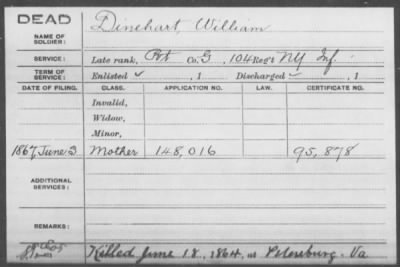 DEAD
NAME OF SOLDIER: Dinehart, William
SERVICE: Late rank, Pvt Co. G, 104 Reg't NY Inf.
TERM OF SERVICE: Enlisted ✓ , 1 Discharged ✓ , 1
DATE OF FILING. CLASS. APPLICATION NO. LAW. CERTIFICATE NO.
Invalid,
Widow,
Minor,
1867, June 3 Mother 148,016 95,878
ADDITIONAL SERVICES:
REMARKS:
Killed June 18, 1864, at Petersburg. Va